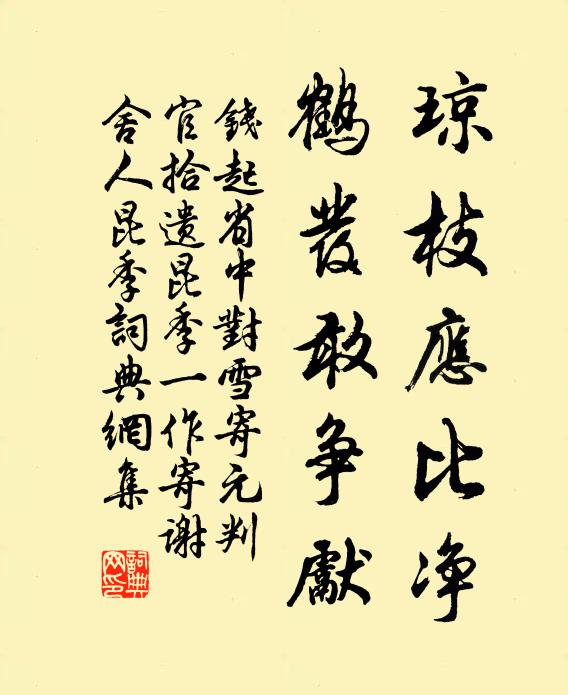 琼枝應比净
鶴發敢争獻
錢起省中對雪寄元判
官拾遺昆季一作寄谢
舍人昆季詞典網集
詞典
网印